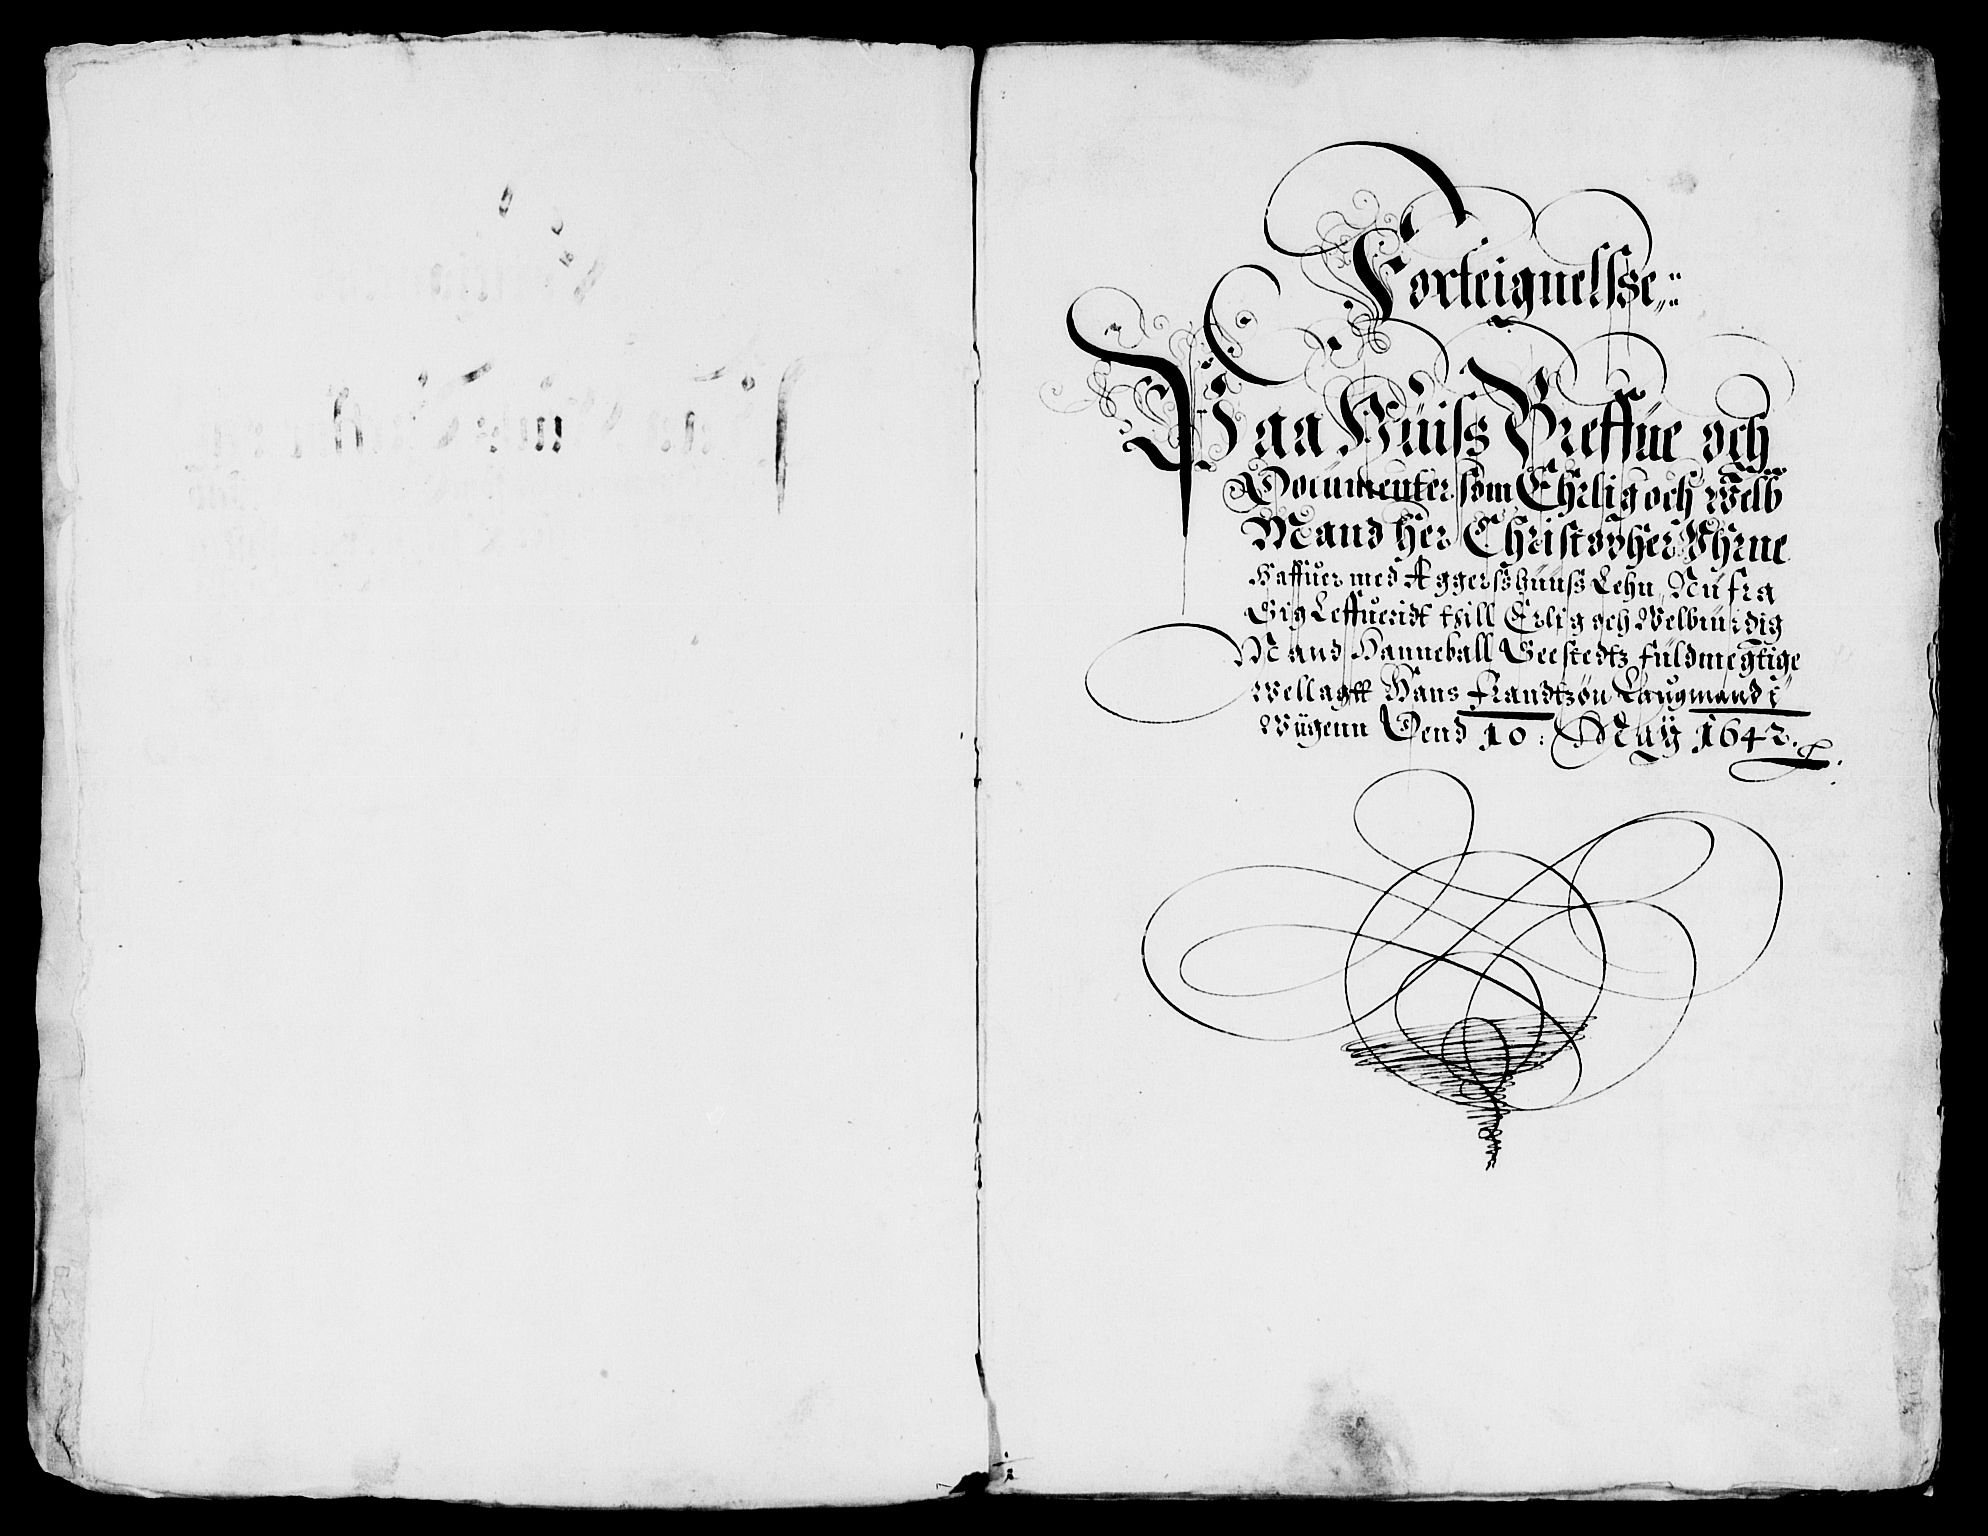 Forteignelsze
Paa Huisz Breffue och
Documenter som Ehrlig och Welb
Mand Her Christopher Uhrne
Haffuer med Aggerszhuusz Lehn, Nu fra
Sig Leffueridt thill Erlig och Welbiurdig
Mand Hanneball Seestedtz fuldmegtige
Wellagtt Hans Frandtzøn Laugmand i
Wiigenn Dend 10: Maÿ 1642.